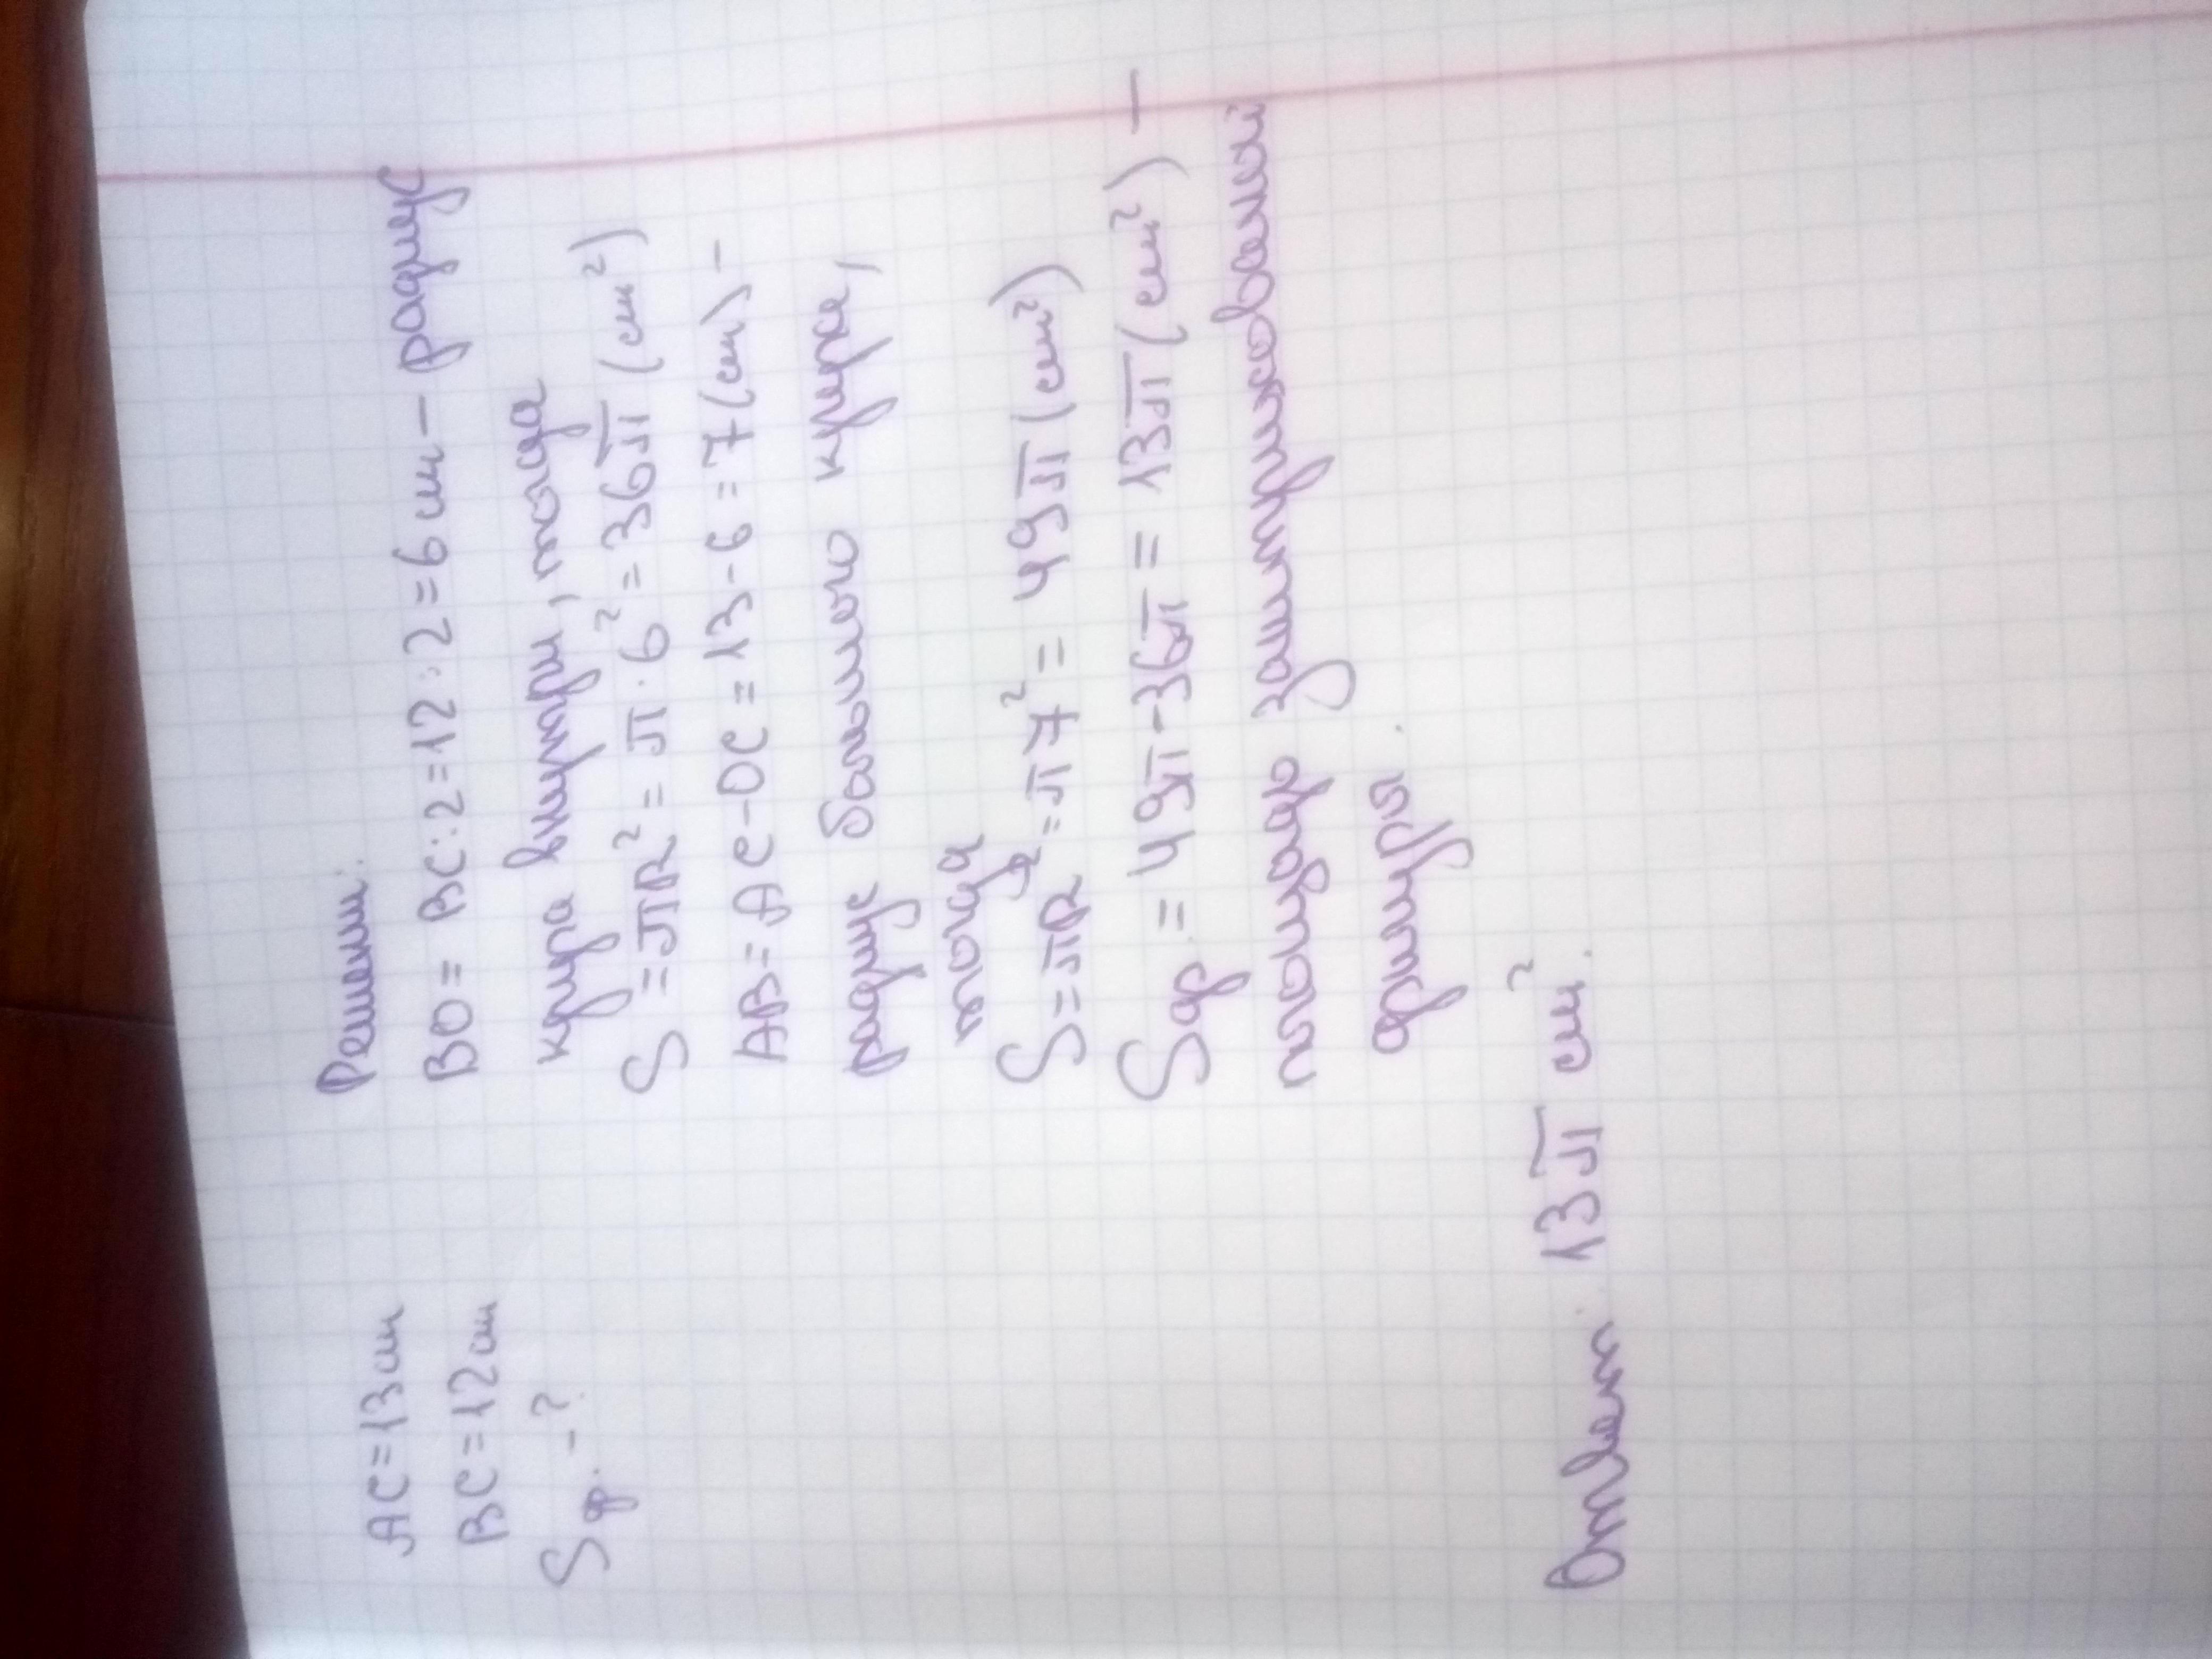 AC=13см
BC=12см
Sф. -?
Решени:
BO= BC:2=12:2=6 см – радиус
круга внутри, тогда
S=πR²=π·6²=36π (см²)
AB= AC-OC=13-6=7(см) –
радиус большого круга,
тогда
S=πR²=π7²= 49π (см²)
Sф.=49π-36π=13π(см²) –
площадь заштрихованной
фигуры.
Ответ: 13π см².